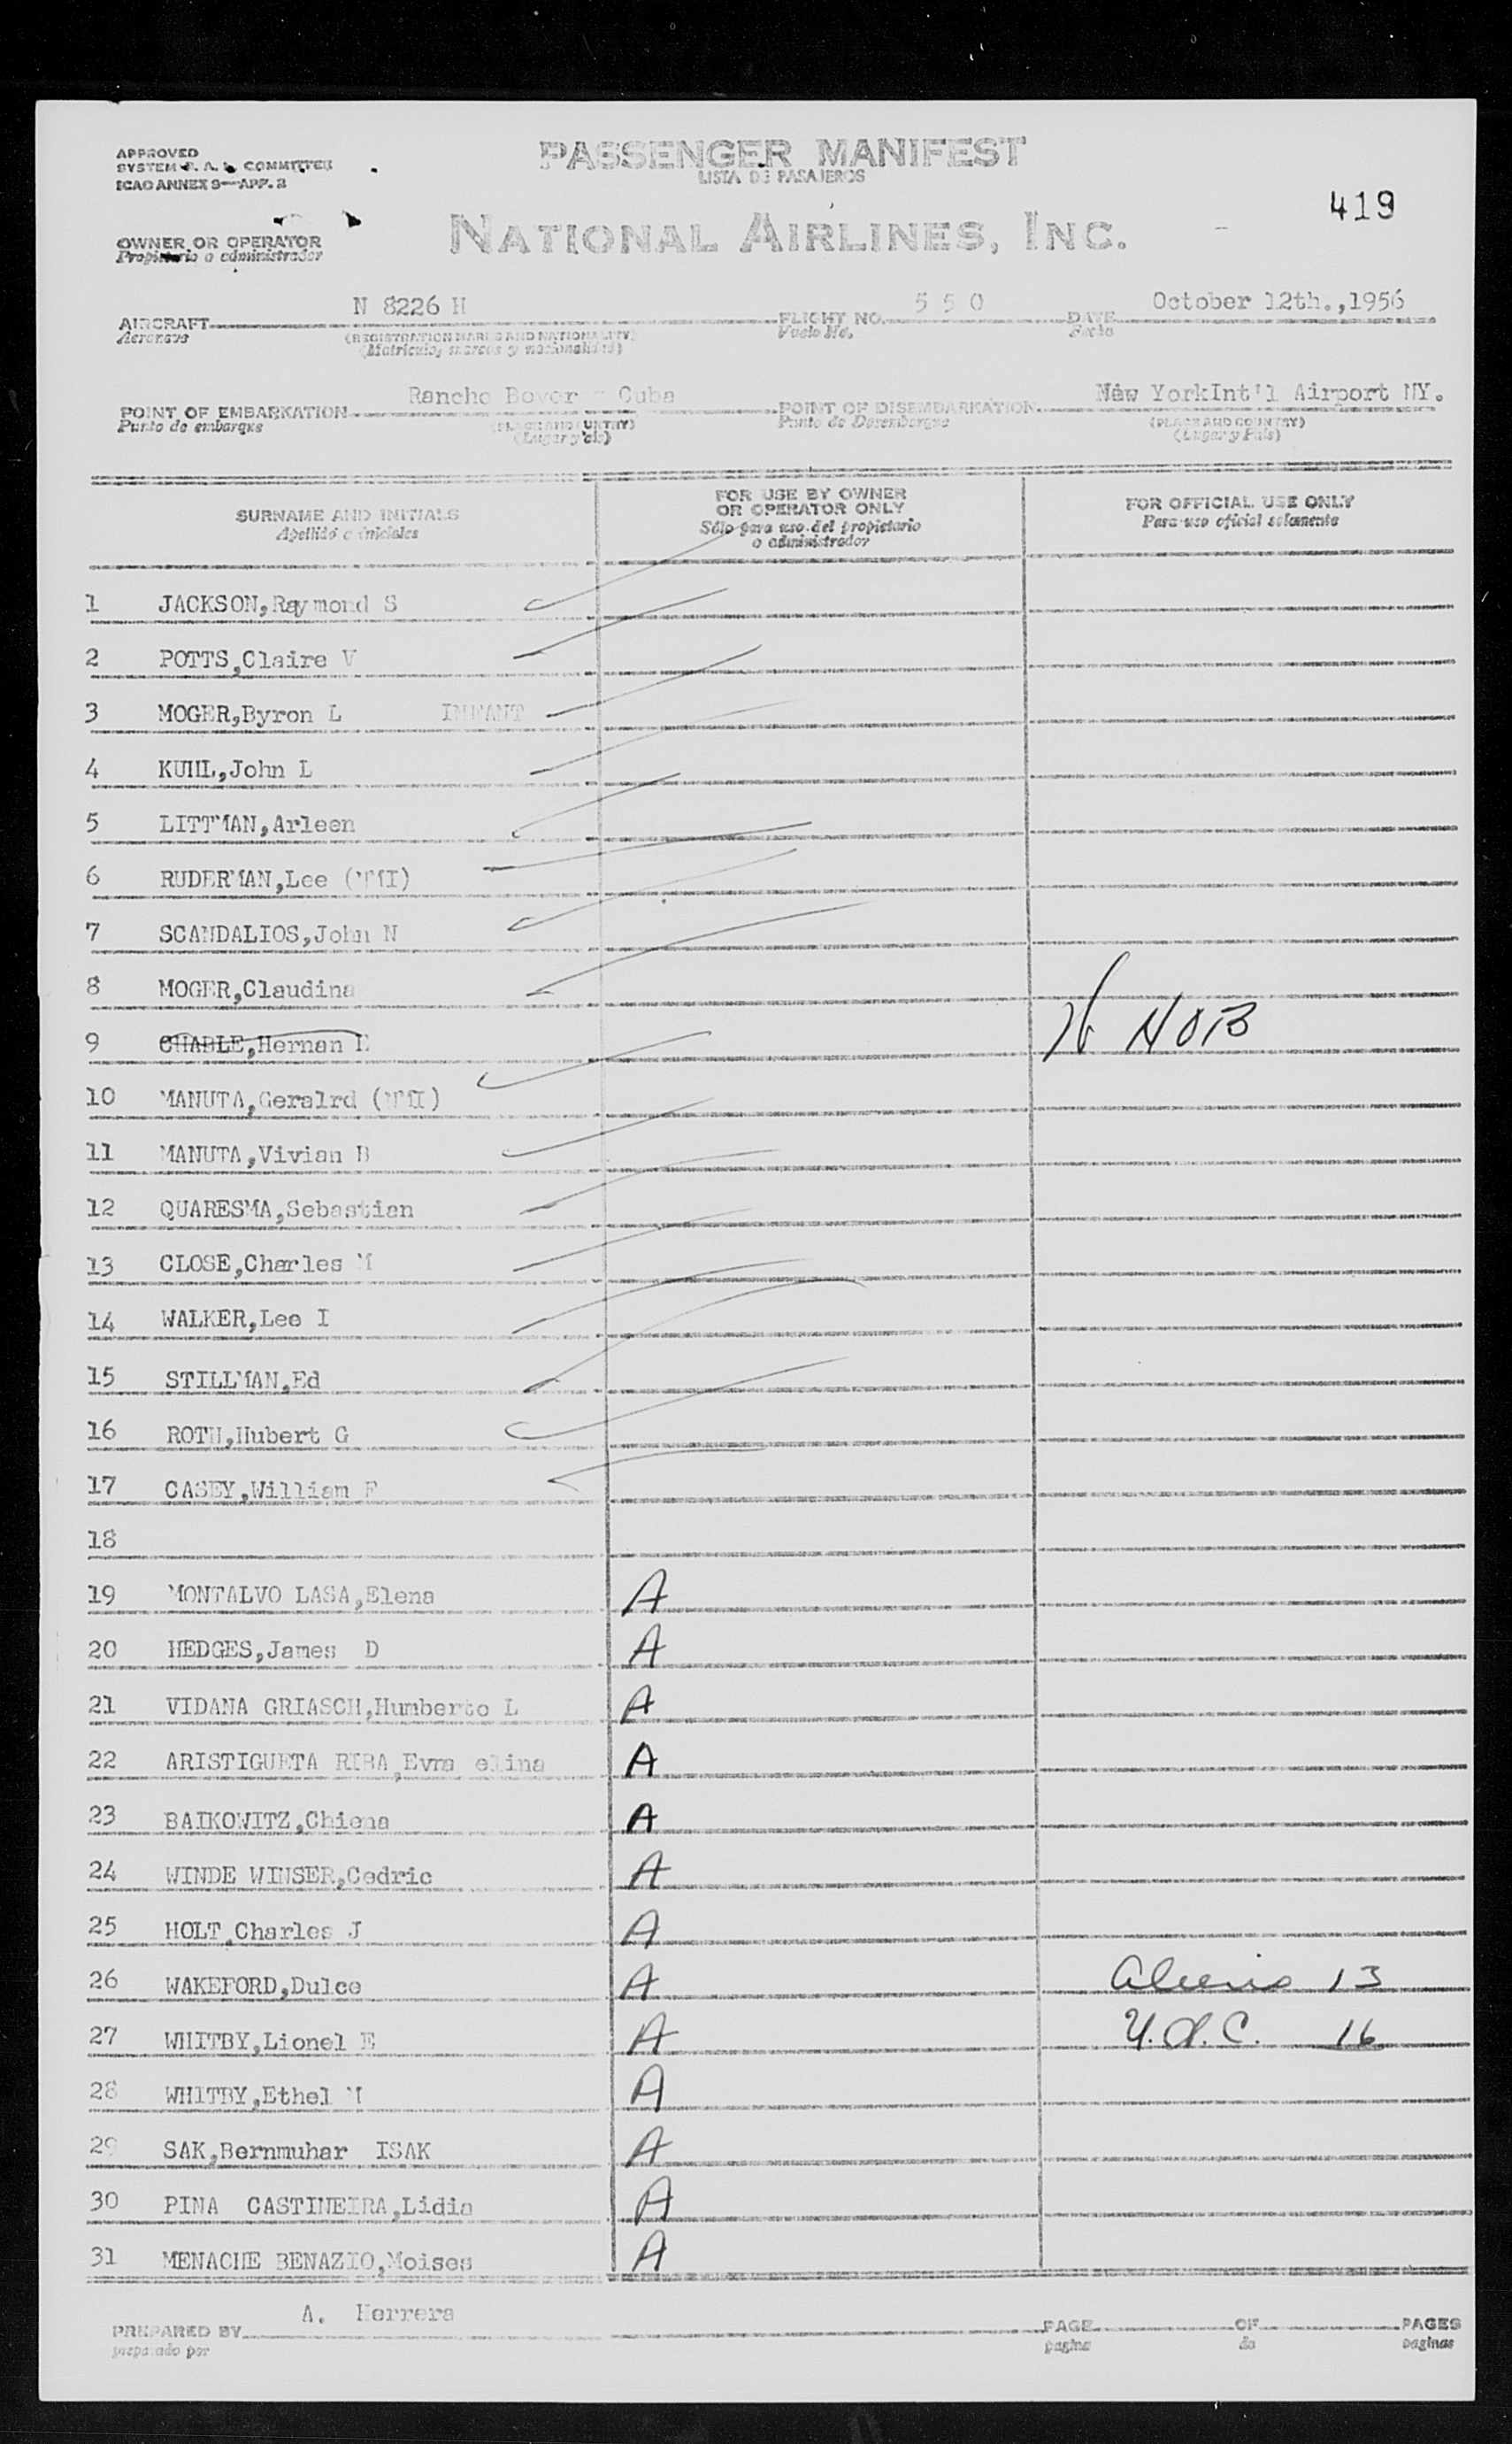 APPROVED
SYSTEM F. A. L. COMMITTEE
ICAO ANNEX 9—APP. 2
PASSENGER MANIFEST
LISTA DE PASAJEROS
419
OWNER OR OPERATOR
Propietario o administrador
NATIONAL AIRLINES, INC.
AIRCRAFT N 8226 H FLIGHT NO. 5 5 0 DATE October 12th.,1956
Aeronave (REGISTRATION MARKS AND NATIONALITY) Vuelo No. Fecha
(Matricula, marcas y nacionalidad)
POINT OF EMBARKATION Rancho Boyer - Cuba POINT OF DISEMBARKATION New YorkInt'l Airport NY.
Punto de embarque (PLACE AND COUNTRY) Punto de Desembarque (PLACE AND COUNTRY)
(Lugar y Pais) (Lugar y Pais)
SURNAME AND INITIALS FOR USE BY OWNER OR OPERATOR ONLY FOR OFFICIAL USE ONLY
Apellido e iniciales Sólo para uso del propietario o administrador Para uso oficial solamente
1 JACKSON,Raymond S
2 POTTS,Claire V
3 MOGER,Byron L INFANT
4 KUHL,John L
5 LITTMAN,Arleen
6 RUDERMAN,Lee (NMI)
7 SCANDALIOS,John N
8 MOGER,Claudina
9 CHABLE,Hernan E NOB
10 MANUTA,Geralrd (NMI)
11 MANUTA,Vivian B
12 QUARESMA,Sebastian
13 CLOSE,Charles M
14 WALKER,Lee I
15 STILLMAN,Ed
16 ROTH,Hubert G
17 CASEY,William F
18
19 MONTALVO LASA,Elena A
20 HEDGES,James D A
21 VIDANA GRIASCH,Humberto L A
22 ARISTIGUETA RIBA,Evra elina A
23 BAIKOWITZ,Chiena A
24 WINDE WINSER,Cedric A
25 HOLT,Charles J A
26 WAKEFORD,Dulce A Aliens 13
27 WHITBY,Lionel E A U.S.C. 16
28 WHITBY,Ethel M A
29 SAK,Bernmuhar ISAK A
30 PINA CASTINEIRA,Lidia A
31 MENACHE BENAZIO,Moises A
PREPARED BY A. Herrera PAGE OF PAGES
preparado por pagina de paginas